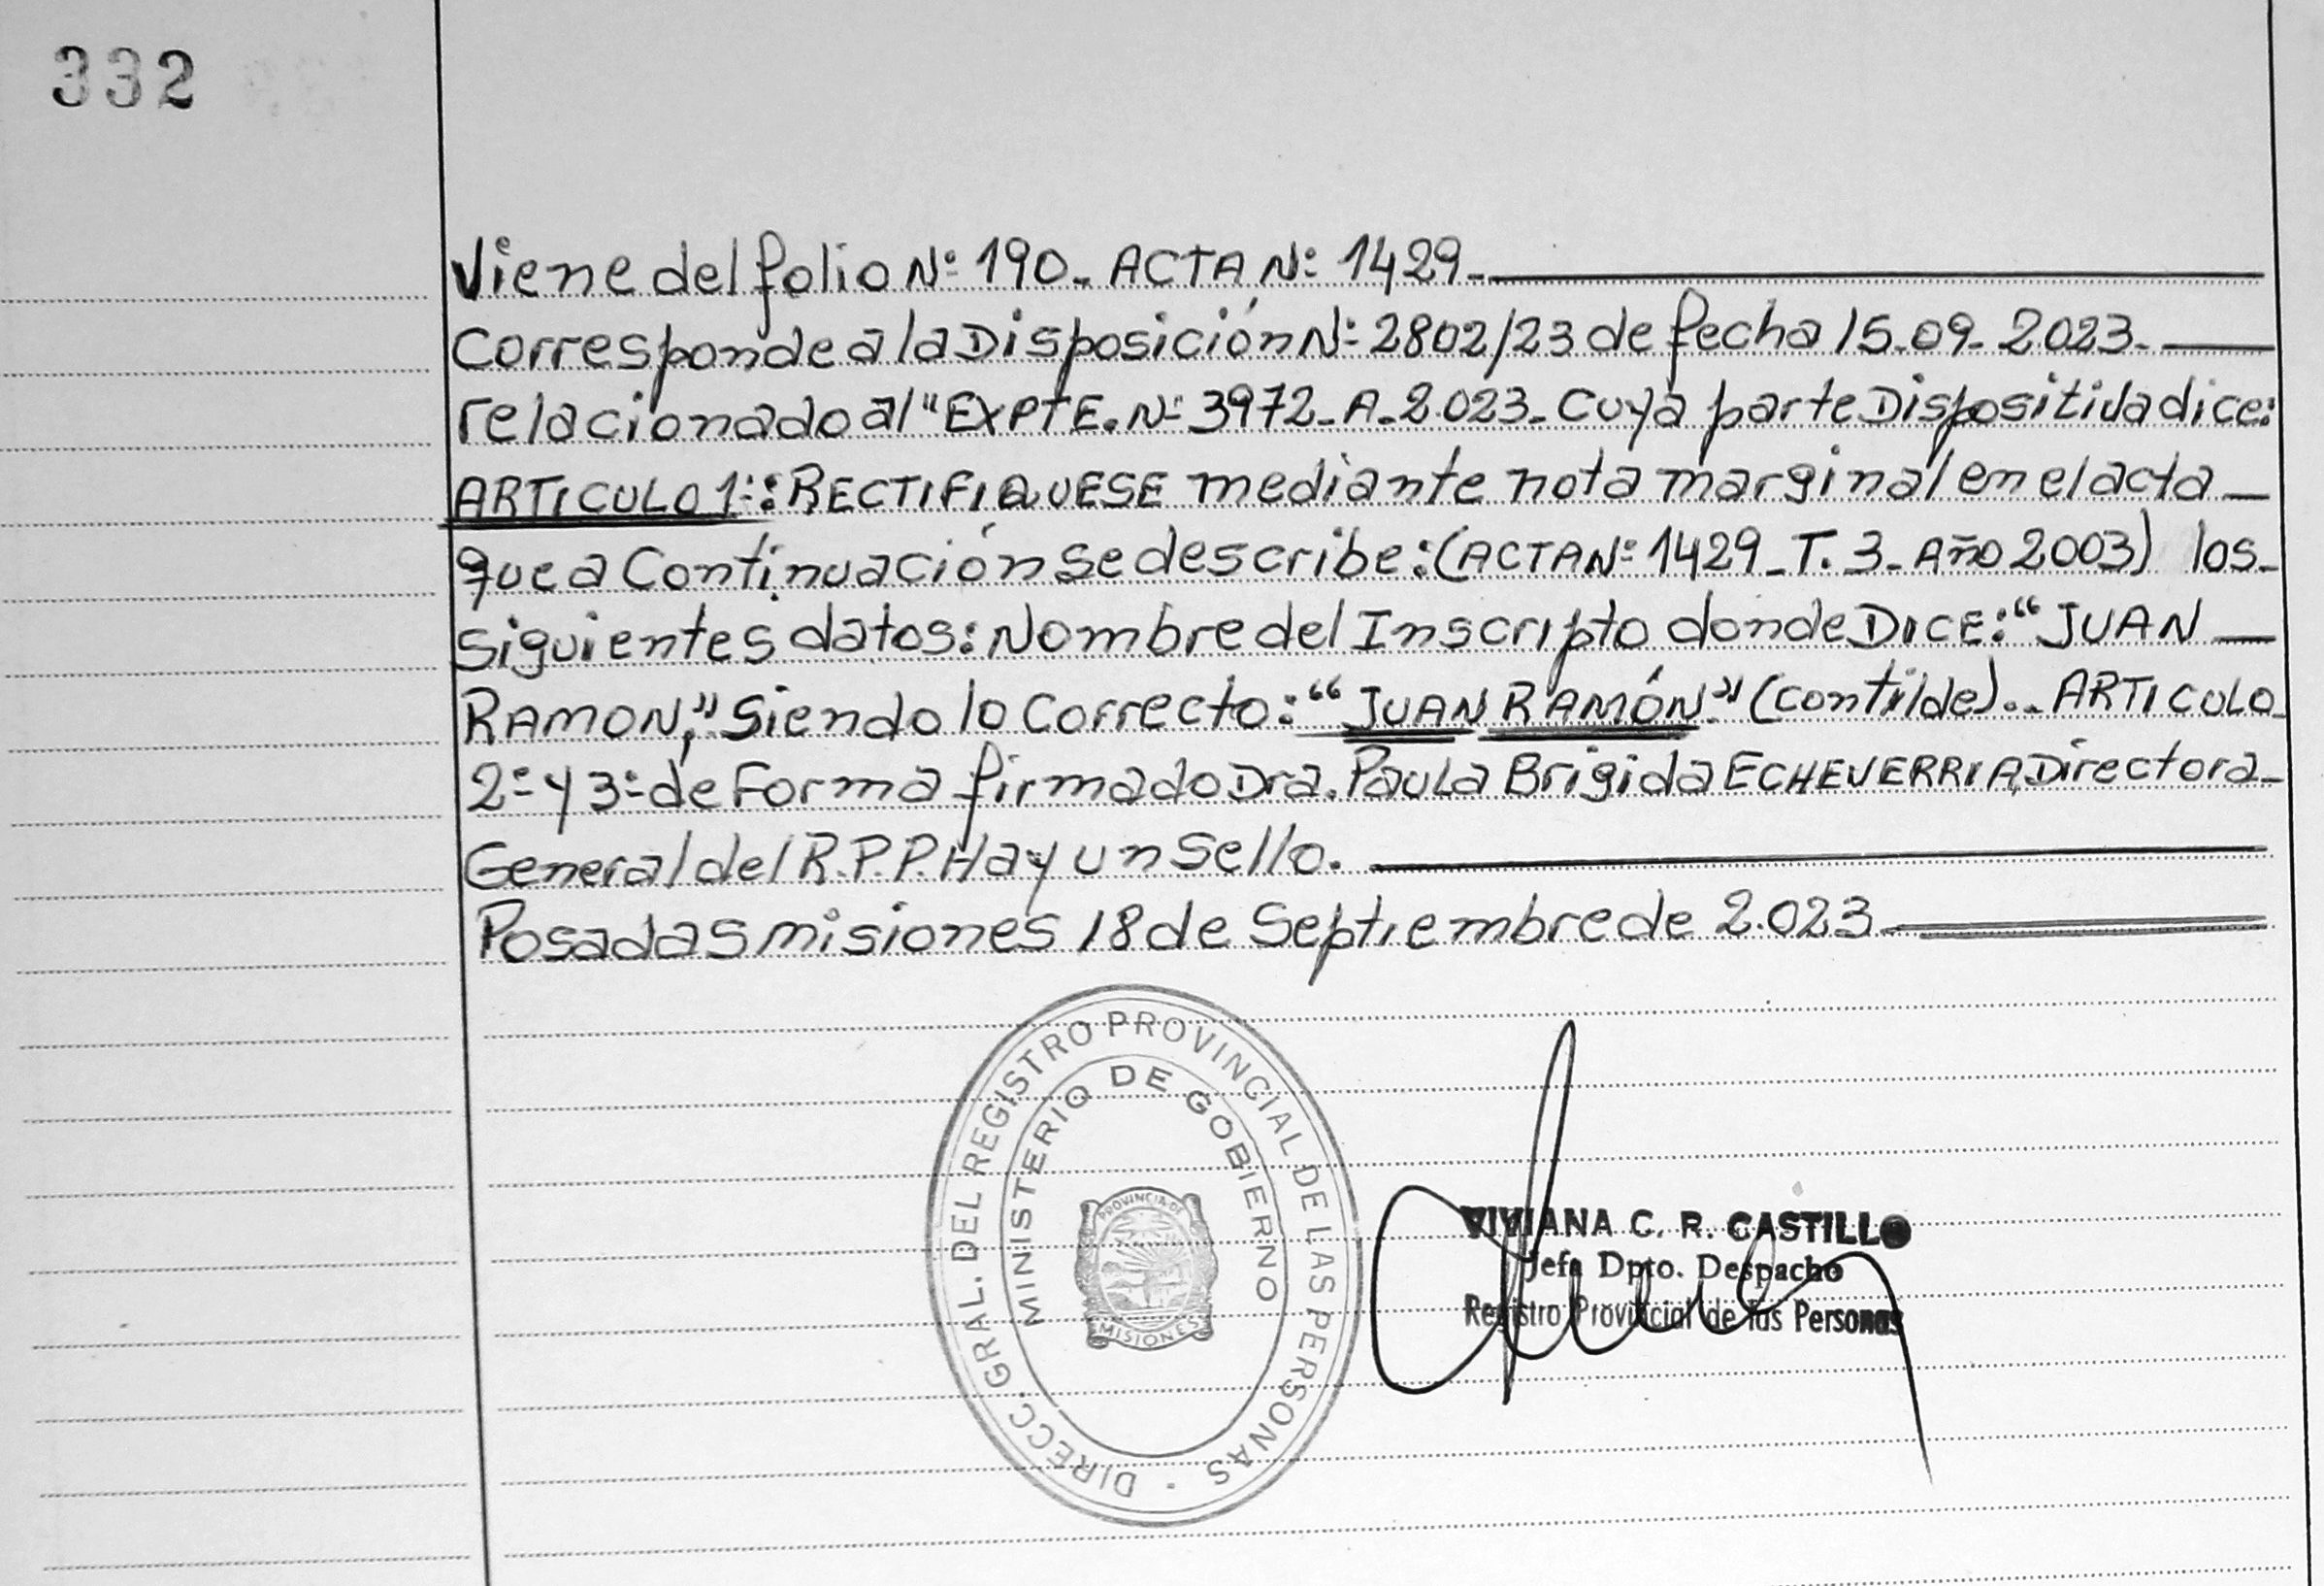 332
Viene del folio Nº 190_ ACTA Nº 1429_
Corresponde a la Disposición Nº 2802/23 de fecha 15_09_2023_
relacionado al "EXPTE. Nº 3972_A_2.023_ Cuya parte Dispositiva dice:
ARTICULO 1º: RECTIFIQUESE mediante nota marginal en el acta_
que a Continuación se describe: (ACTA Nº 1429_T. 3_Año 2003) los_
siguientes datos: Nombre del Inscripto donde DICE: "JUAN_
RAMON", Siendo lo Correcto: "JUAN RAMÓN" (con tilde)._ ARTICULO
2º y 3º de Forma firmado Dra. Paula Brigida ECHEVERRIA, Directora_
General del R.P.P. Hay un Sello.
Posadas misiones 18 de Septiembre de 2.023_
DIRECC. GRAL. DEL REGISTRO PROVINCIAL DE LAS PERSONAS
MINISTERIO DE GOBIERNO
PROVINCIA DE
MISIONES
VIVIANA C. R. CASTILLO
Jefa Dpto. Despacho
Registro Provincial de las Personas